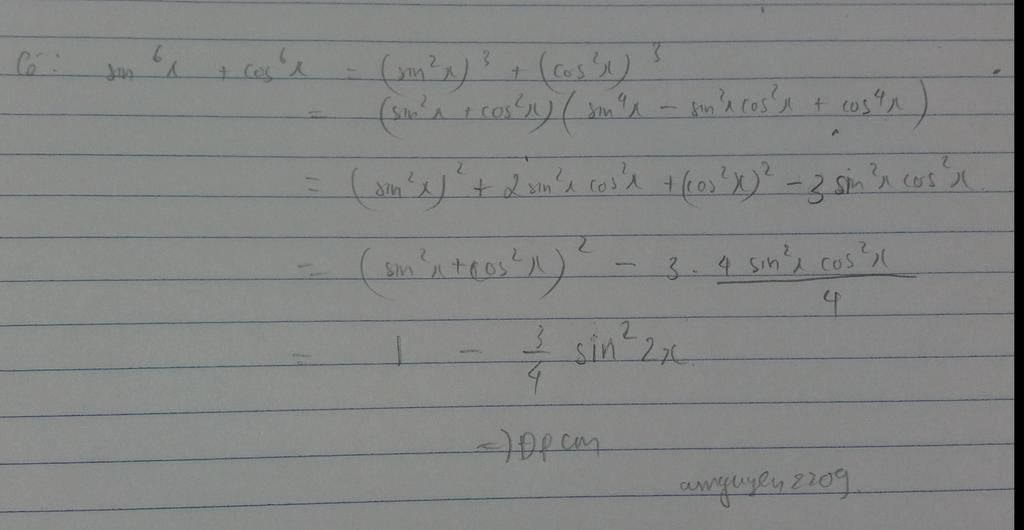 Có: sin⁶x + cos⁶x = (sin²x)³ + (cos²x)³
= (sin²x + cos²x)(sin⁴x - sin²x cos²x + cos⁴x)
= (sin²x)² + 2 sin²x cos²x + (cos²x)² - 3 sin²x cos²x
= (sin²x + cos²x)² - 3 . 4 sin²x cos²x / 4
= 1 - 3/4 sin² 2x
=) Đpcm
amguyen2209